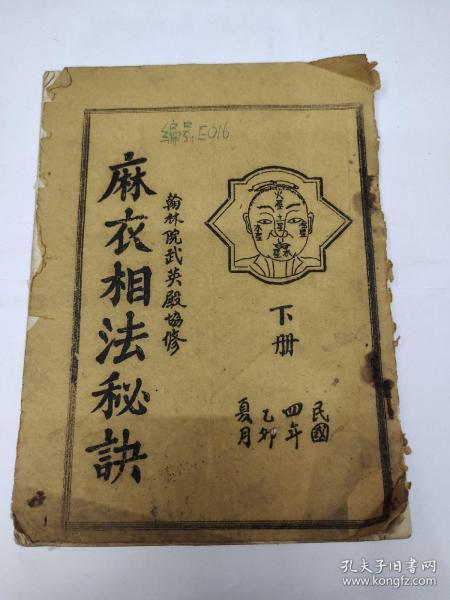 编号:E016
麻衣相法秘訣
翰林院武英殿協修
火星
土星
金星
木星
下册
民國
四年
乙卯
夏月
孔夫子旧书网
www.kongfz.com